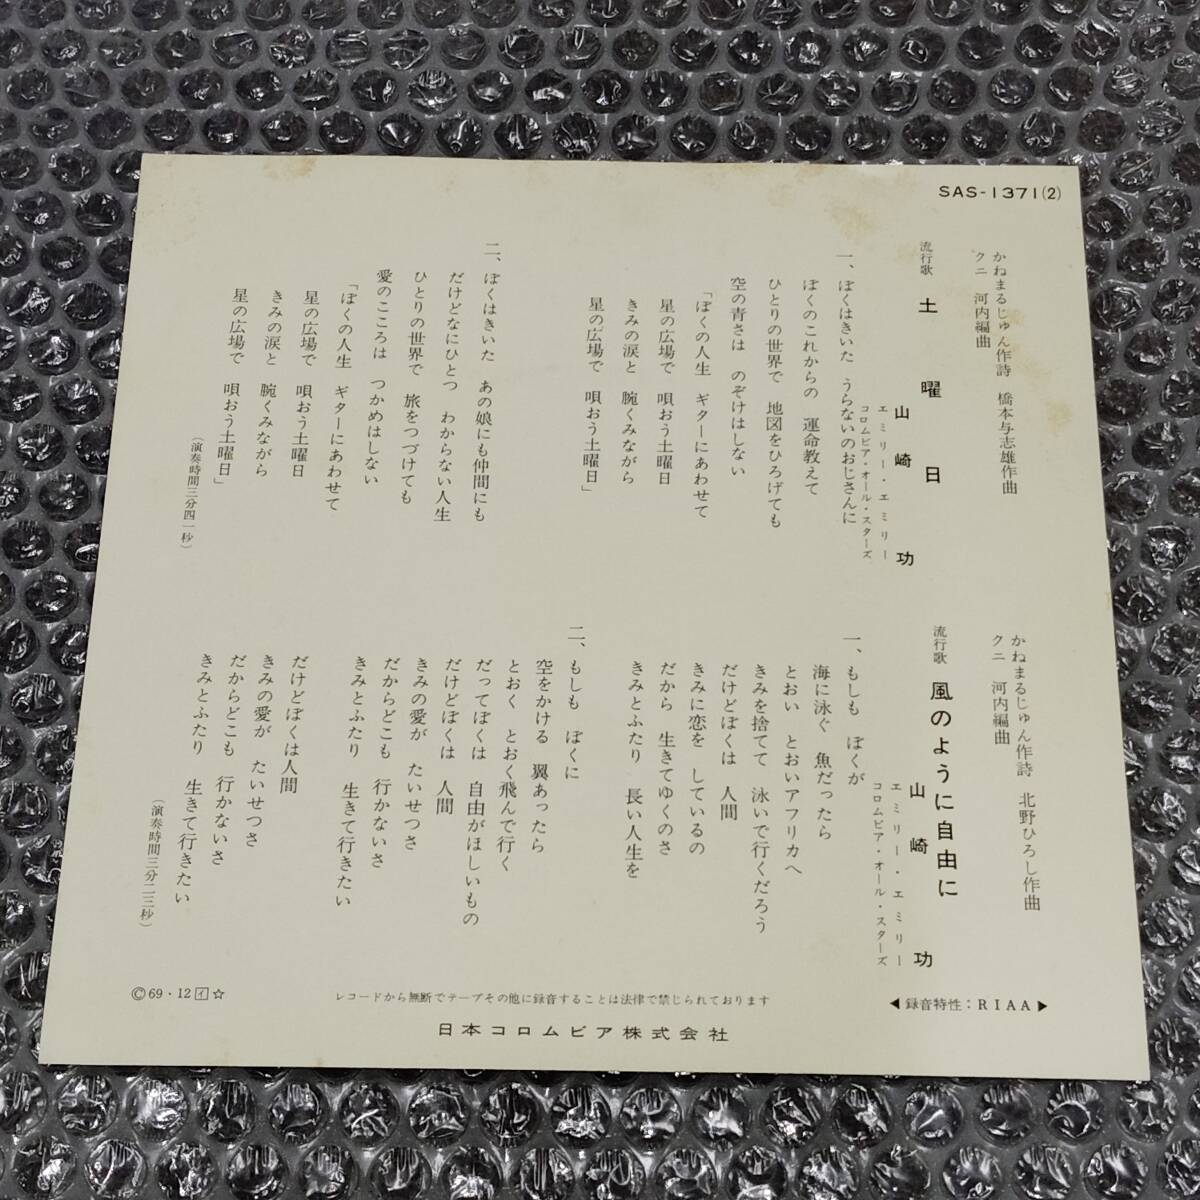 SAS-1371(2)
かねまるじゅん作詩 橋本与志雄作曲
クニ 河内編曲
流行歌 土曜日
山崎功
エミリー・エミリー
コロムビア・オール・スターズ
一、ぼくはきいた うらないのおじさんに
ぼくのこれからの 運命教えて
ひとりの世界で 地図をひろげても
空の青さは のぞけはしない
「ぼくの人生 ギターにあわせて
星の広場で 唄おう土曜日
きみの涙と 腕くみながら
星の広場で 唄おう土曜日」
二、ぼくはきいた あの娘にも仲間にも
だけどなにひとつ わからない人生
ひとりの世界で 旅をつづけても
愛のこころは つかめはしない
「ぼくの人生 ギターにあわせて
星の広場で 唄おう土曜日
きみの涙と 腕くみながら
星の広場で 唄おう土曜日」
(演奏時間三分四一秒)
かねまるじゅん作詩 北野ひろし作曲
クニ 河内編曲
流行歌 風のように自由に
山崎功
エミリー・エミリー
コロムビア・オール・スターズ
一、もしも ぼくが
海に泳ぐ 魚だったら
とおい とおいアフリカへ
きみを捨てて 泳いで行くだろう
だけどぼくは 人間
きみに恋を しているの
だから 生きてゆくのさ
きみとふたり 長い人生を
二、もしも ぼくに
空をかける 翼あったら
とおく とおく飛んで行く
だってぼくは 自由がほしいもの
だけどぼくは 人間
きみの愛が たいせつさ
だからどこも 行かないさ
きみとふたり 生きて行きたい
だけどぼくは人間
きみの愛が たいせつさ
だからどこも 行かないさ
きみとふたり 生きて行きたい
(演奏時間三分二三秒)
©69・12イ☆
レコードから無断でテープその他に録音することは法律で禁じられております
◀録音特性:RIAA▶
日本コロムビア株式会社